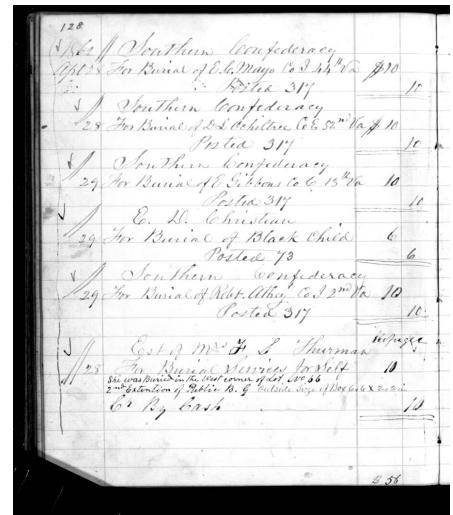 128
1862 Southern Confederacy
Apl 28 For Burial of E. C. Mayo Co I 44th Va $10
Posted 317 10
Southern Confederacy
28 For Burial of D. L. Ochiltree Co E 52nd Va $10
Posted 317 10
Southern Confederacy
29 For Burial of E Gibbons Co C, 13th Va 10
Posted 317 10
E. D. Christian
29 For Burial of Black Child 6
Posted 73 6
Southern Confederacy
29 For Burial of Robt. Athey Co I 2nd Va 10
Posted 317 10
Est of Mrs F L Thurman
28 For Burial Services for Self 10
She was Buried in the West corner of Lot, No 66
2nd Extention of Public B. G. Outside Size of Box 6x6 x 2x2 in
Cr By Cash 10
$ 56